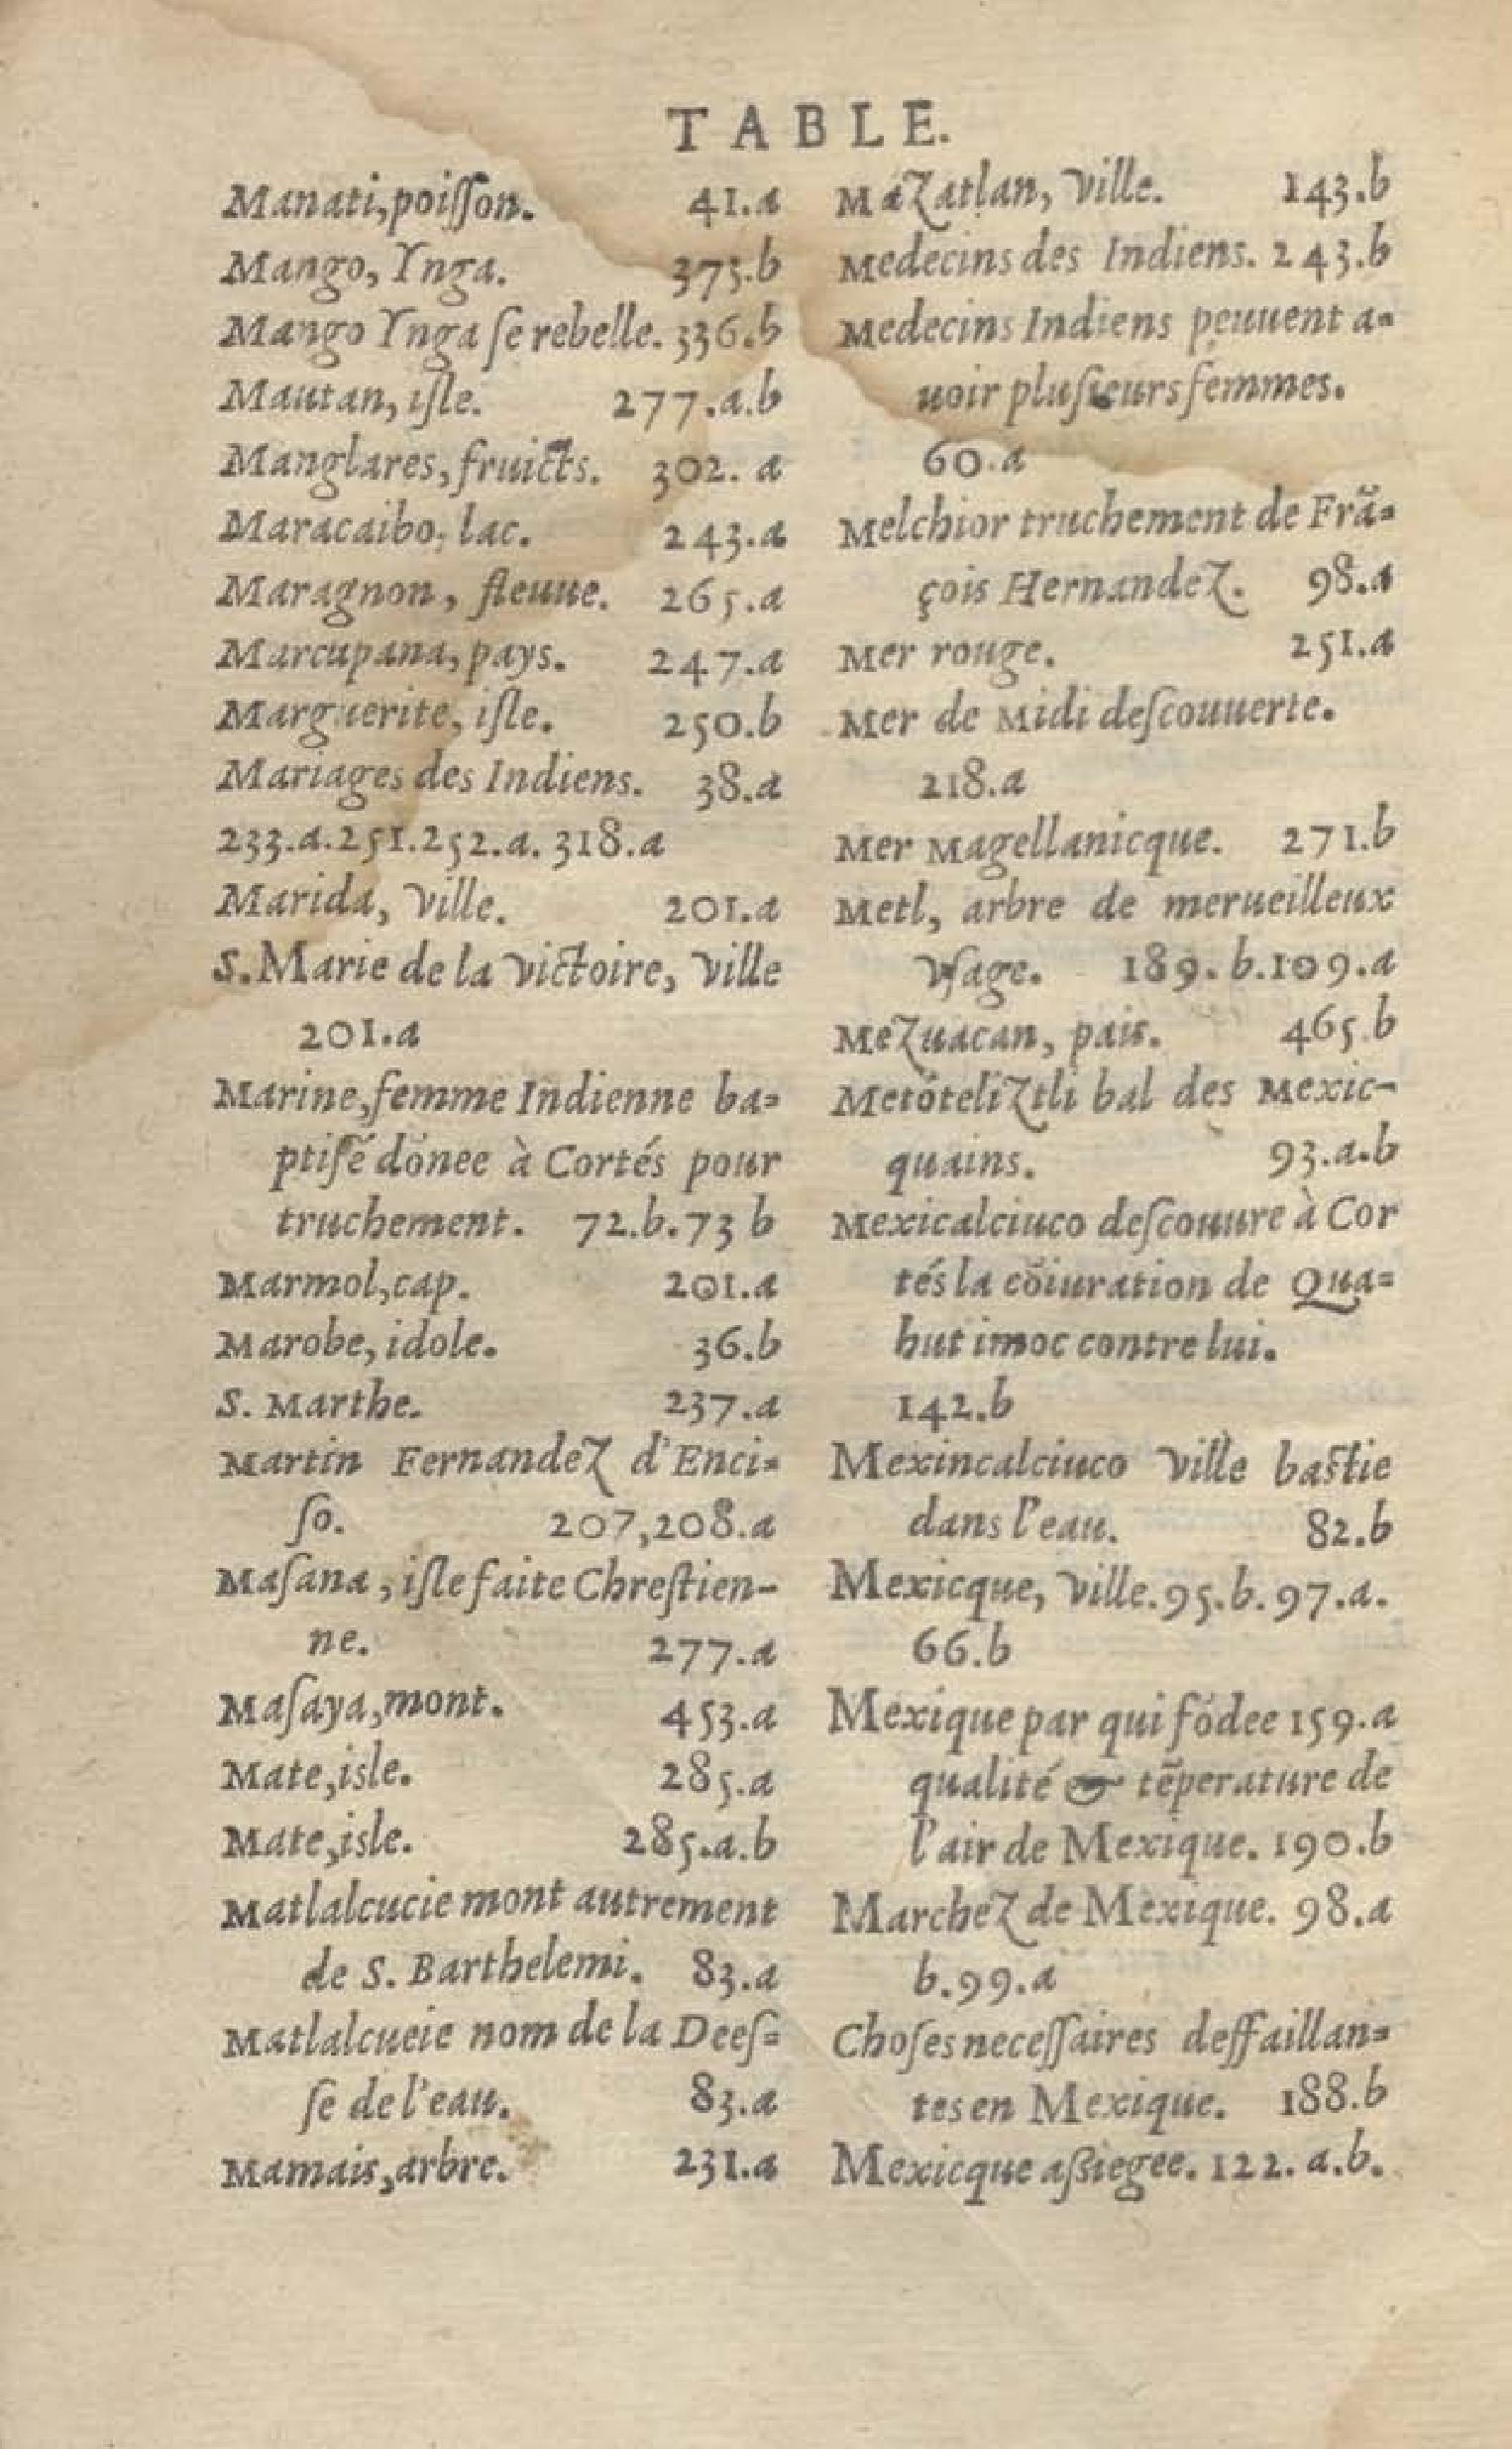 TABLE.
Manati, poiſſon. 41.a
Mango, Ynga. 373.b
Mango Ynga ſe rebelle. 336.b
Mautan, iſle. 277.a.b
Manglares, fruicts. 302. a
Maracaibo, lac. 243.a
Maragnon, fleuue. 265.a
Marcupana, pays. 247.a
Marguerite, iſle. 250.b
Mariages des Indiens. 38.a
233.a.251.252.a. 318.a
Marida, ville. 201.a
S. Marie de la victoire, ville
201.a
Marine, femme Indienne ba-
ptiſé dōnee à Cortés pour
truchement. 72.b.73 b
Marmol, cap. 201.a
Marobe, idole. 36.b
S. Marthe. 237.a
Martin Fernandez d'Enci-
ſo. 207,208.a
Maſana, iſle faite Chreſtien-
ne. 277.a
Maſaya, mont. 453.a
Mate, isle. 285.a
Mate, isle. 285.a.b
Matlalcucie mont autrement
de S. Barthelemi. 83.a
Matlalcueie nom de la Deeſ-
ſe de l'eau. 83.a
Mamais, arbre. 231.a
Mazatlan, ville. 143.b
Medecins des Indiens. 243.b
Medecins Indiens peuuent a-
uoir pluſieurs femmes.
60.a
Melchior truchement de Frā-
çois Hernandez. 98.a
Mer rouge. 251.a
Mer de Midi deſcouuerte.
218.a
Mer Magellanicque. 271.b
Metl, arbre de merueilleux
vſage. 189. b.109.a
Mezuacan, pais. 465.b
Metōteliztli bal des Mexic-
quains. 93.a.b
Mexicalciuco deſcouure à Cor
tés la cōiuration de Qua-
hutimoc contre lui.
142.b
Mexincalciuco ville baſtie
dans l'eau. 82.b
Mexicque, ville. 95.b.97.a.
66.b
Mexique par qui fōdee 159.a
qualité & tēperature de
l'air de Mexique. 190.b
Marchez de Mexique. 98.a
b.99.a
Choſes neceſſaires deffaillan-
tes en Mexique. 188.b
Mexicque aßiegee. 122. a.b.